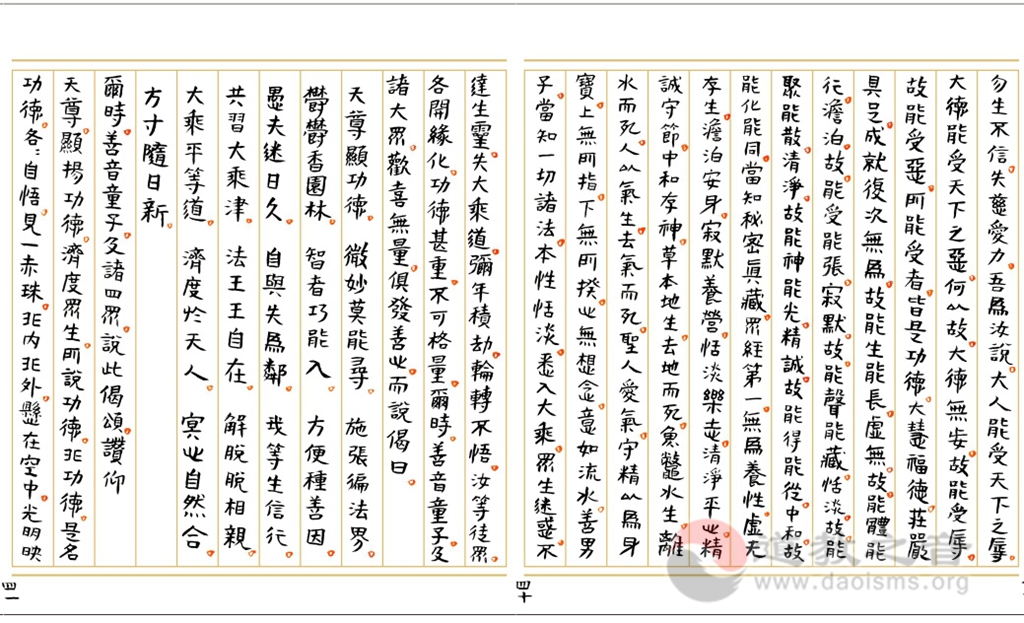 勿生不信。失慈愛力。吾為汝說。大人能受天下之辱。
大德能受天下之惡。何以故。大德無安。故能受辱。
故能受惡。所能受者。皆是功德。大慧福德。莊嚴
具足。成就復次無為。故能生能長。虛無。故能體能
行。澹泊。故能受能張。寂默。故能聲能藏。恬淡。故能
聚能散。清淨。故能神能光。精誠。故能得能從。中和。故
能化能同。當知秘密真藏。眾經第一。無為養性。虛无
存生。澹泊安身。寂默養營。恬淡樂志。清淨平心。精
誠守節。中和存神。草本地生。去地而死。魚鼈水生。離
水而死。人以氣生。去氣而死。聖人愛氣。守精以為身
寶。上無所指。下無所揆。心無想念。意如流水。善男
子。當知一切諸法。本性恬淡。悉入大乘。眾生迷惑。不
達生靈。失大乘道。彌年積劫。輪轉不悟。汝等徒眾。
各開緣化。功德甚重。不可格量。爾時。善音童子。及
諸大眾。歡喜無量。俱發善心。而說偈曰。
天尊顯功德。 微妙莫能尋。 施張徧法界。
鬱鬱香園林。 智者巧能入。 方便種善因。
愚夫迷日久。 自與失為鄰。 我等生信行。
共習大乘津。 法王王自在。 解脫脫相親。
大乘平等道。 濟度於天人。 冥心自然合。
方寸隨日新。
爾時。善音童子。及諸四眾。說此偈頌。讚仰
天尊。顯揚功德。濟度眾生。所說功德。非功德。是名
功德。各各自悟。見一赤珠。非內非外。懸在空中。光明映
四十
四一
道教之音
www.daoisms.org